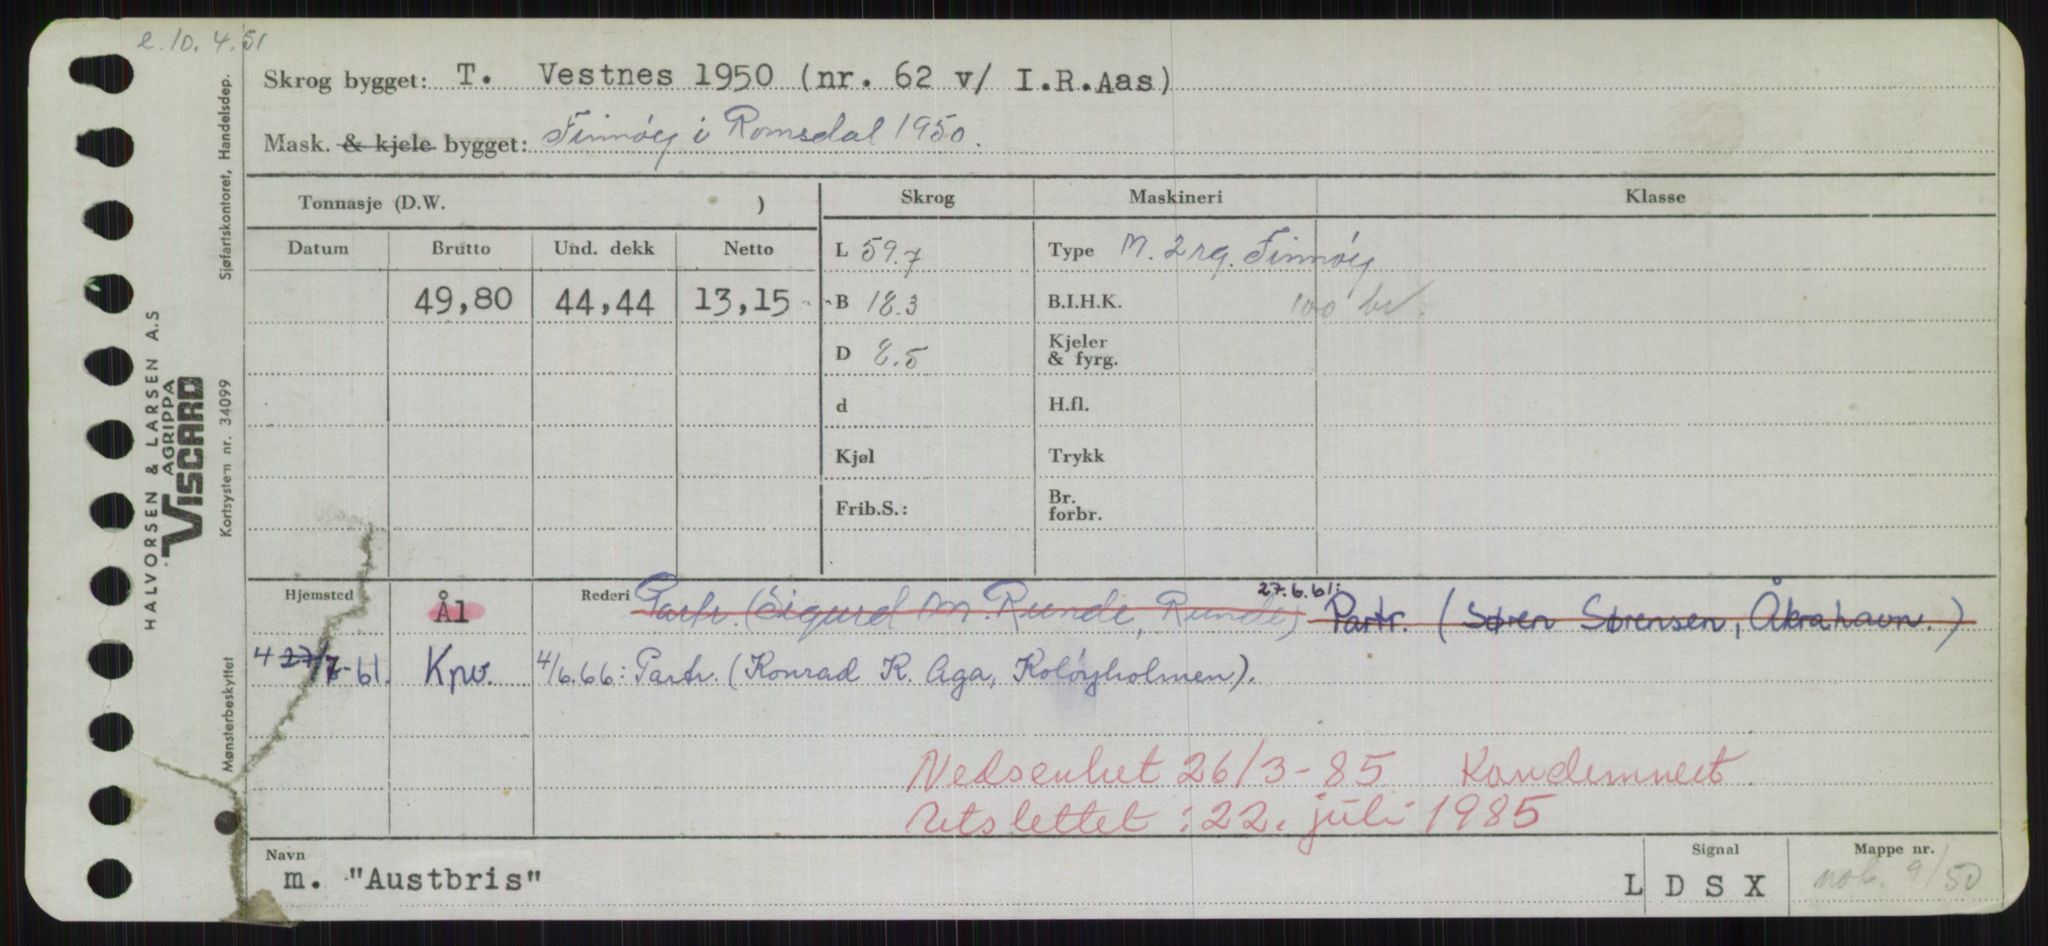 e.10.4.51
Skrog bygget: T. Vestnes 1950 (nr. 62 v/ I.R.Aas)
Mask. & kjele bygget: Finnøy i Romsdal 1950.
Tonnasje (D.W. ) Skrog Maskineri Klasse
Datum Brutto Und. dekk Netto L 59.7 Type M. 2 syl. Finnøy
49,80 44,44 13,15 B 18.3 B.I.H.K. 100 br.
D 8.5 Kjeler & fyrg.
d H.fl.
Kjøl Trykk
Frib.S.: Br. forbr.
Hjemsted Ål Rederi Partr. (Sigurd M. Runde, Runde) 27.6.61: Partr. (Søren Sørensen, Åkrahavn.)
4/7-61. Kpv. 4/6.66: Partr. (Konrad K. Aga, Koløyholmen).
Nedsenket 26/3-85 Kondemnert
Utslettet: 22. juli 1985
Navn Signal Mappe nr.
m. "Austbris" L D S X not. 9/50
HALVORSEN & LARSEN A.S
AGRIPPA
VISCARD
Mønsterbeskyttet Kortsystem nr. 34099 Sjøfartskontoret, Handelsdep.